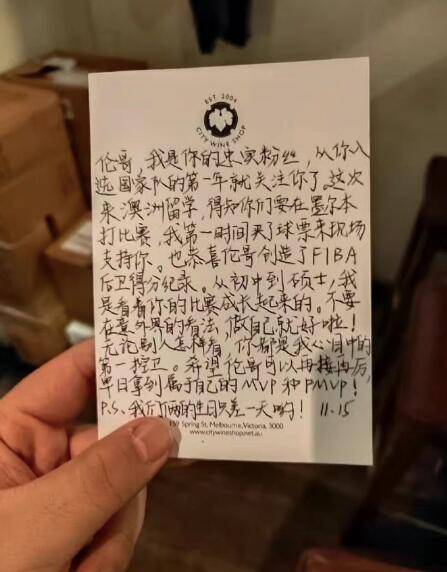 EST. 2004
CITY WINE SHOP
伦哥，我是你的忠实粉丝，从你入
选国家队的第一年就关注你了。这次
来澳洲留学，得知你们要在墨尔本
打比赛，我第一时间买了球票来现场
支持你。也恭喜伦哥创造了FIBA
后卫得分纪录。从初中到硕士，我
是看着你的比赛成长起来的。不要
在意外界的看法，做自己就好啦！
无论别人怎样看，你都是我心目中的
第一控卫。希望伦哥可以再接再厉，
早日拿到属于自己的MVP和FMVP！
P.S. 我们俩的生日只差一天哟！ 11.15
159 Spring St, Melbourne, Victoria, 3000
www.citywineshop.net.au